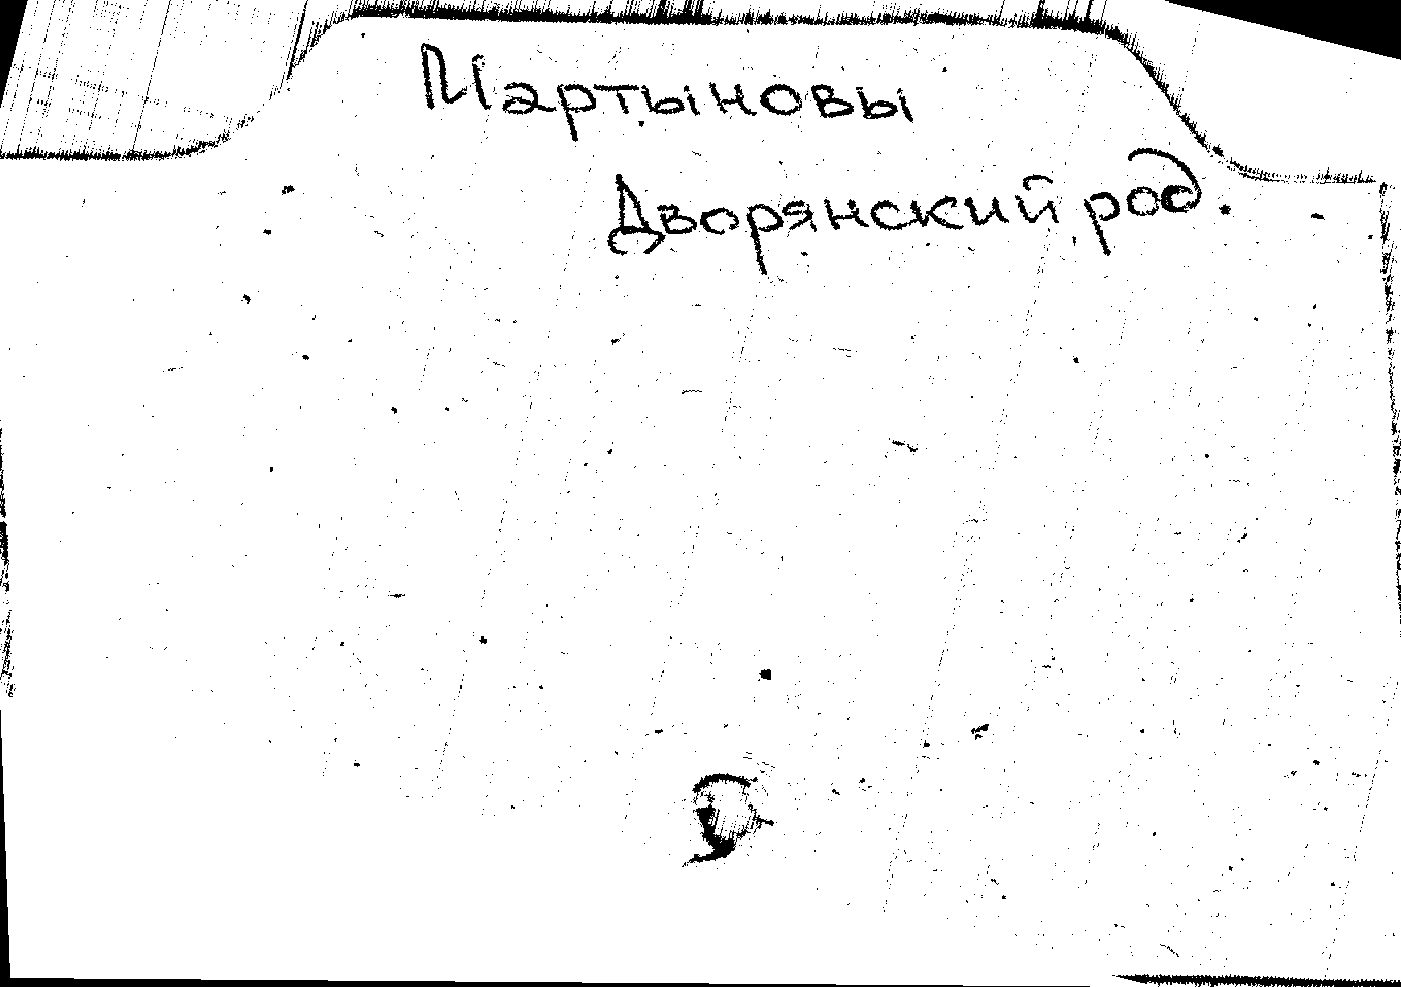 Мартыновы
Дворянский род.